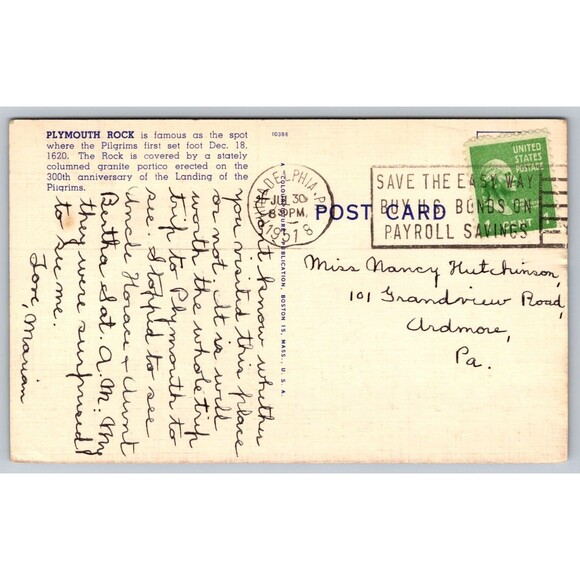 PLYMOUTH ROCK is famous as the spot
where the Pilgrims first set foot Dec. 18,
1620. The Rock is covered by a stately
columned granite portico erected on the
300th anniversary of the Landing of the
Pilgrims.
10386
I don't know whether
you visited this place
or not. It is well
worth the whole trip
trip to Plymouth to
see. Stopped to see
Uncle Horace & Aunt
Bertha Sat. A.M. My
they were surprised
to see me.
Love, Marian
A "COLOURPICTURE" PUBLICATION, BOSTON 15, MASS., U. S. A.
POST CARD
PHILADELPHIA, PA.
JUL 30
8 30 PM
1951
8
SAVE THE EASY WAY
BUY U.S. BONDS ON
PAYROLL SAVINGS
UNITED
STATES
POSTAGE
1 CENT
Miss Nancy Hutchinson,
101 Grandview Road,
Ardmore,
Pa.